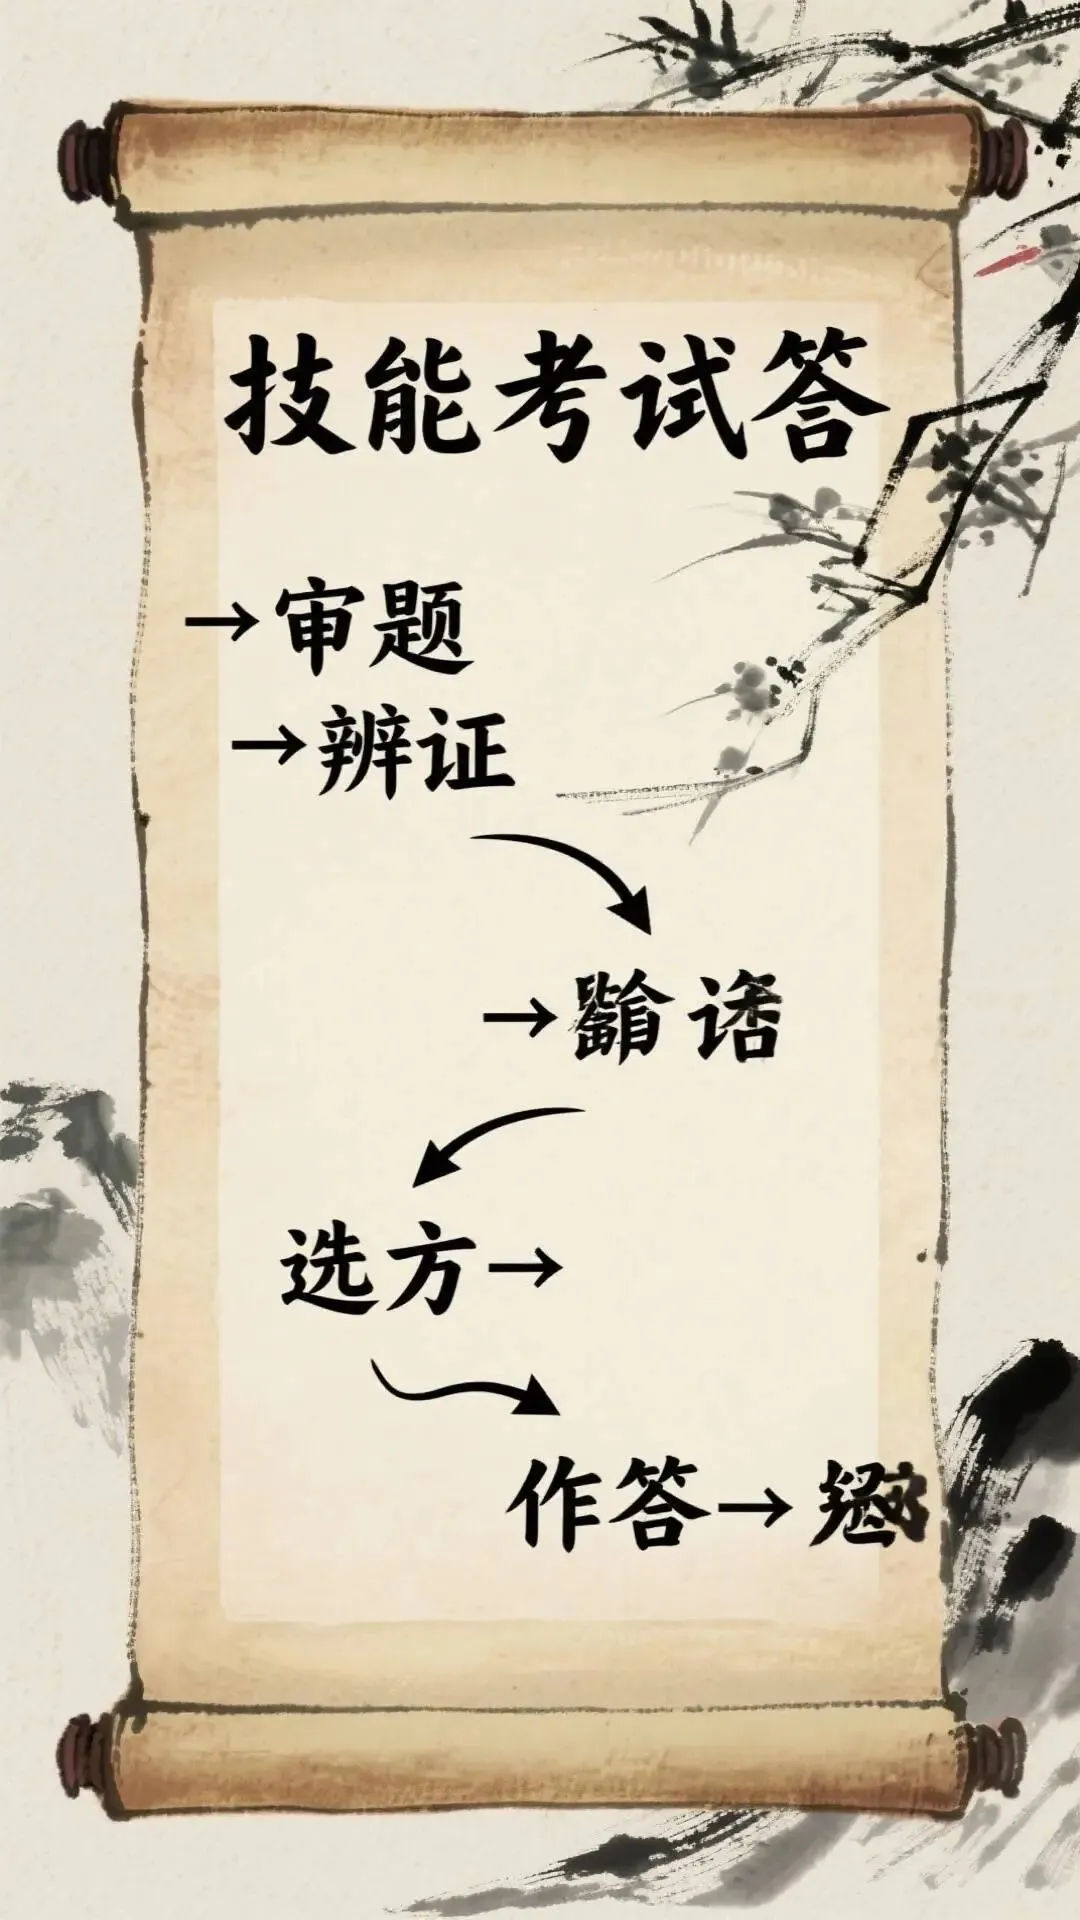 技能考试答
→审题
→辨证
→
选方→
作答→